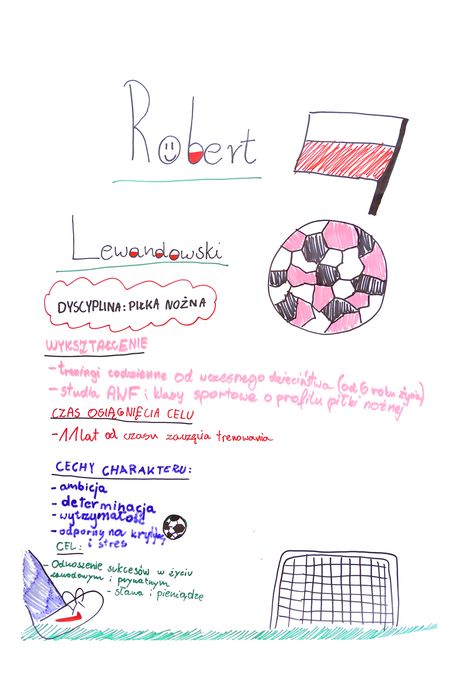 Robert
Lewandowski
DYSCYPLINA: PIŁKA NOŻNA
WYKSZTAŁCENIE
- treningi codzienne od wczesnego dzieciństwa (od 6 roku życia)
- studia AWF i klasy sportowe o profilu piłki nożnej
CZAS OSIĄGNIĘCIA CELU
- 11 lat od czasu zaczęcia trenowania
CECHY CHARAKTERU:
- ambicja
- determinacja
- wytrzymałość
- odporny na krytykę
i stres
CEL:
- Odnoszenie sukcesów w życiu
zawodowym i prywatnym
- sława i pieniądze